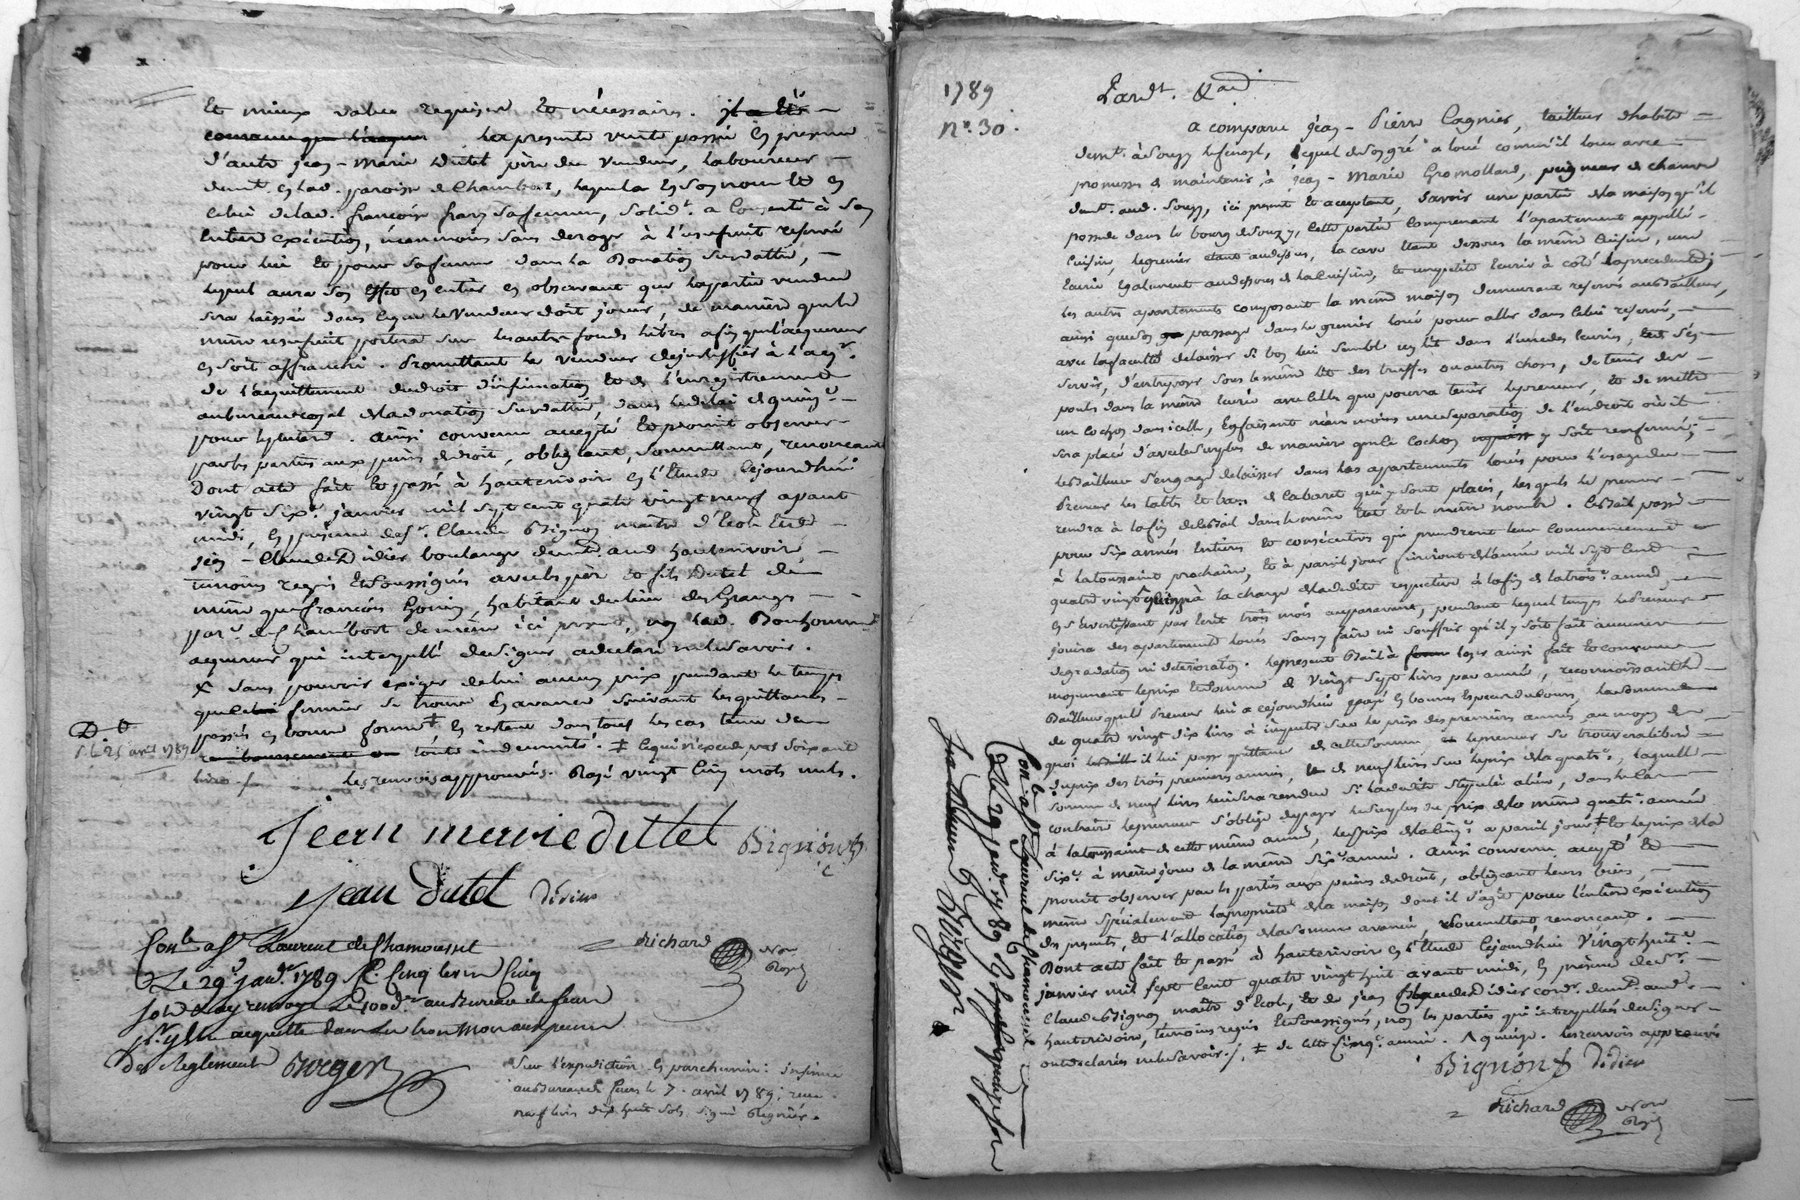 et mieux value requises et nécessaires.
la presente vente passée en presence
d'autre jean-Marie Dutel père du vendeur, laboureur
demt. en lad. paroisse de Chambost, lequel en son nom et en
celui de lad. françoise sa femme, solidt. a consenti à son
entiere exécution, néanmoins sans deroger à l'usufruit reservé
pour lui et pour sa femme dans la Donation susdattée,
lequel aura son effet en entier en observant que la partie vendue
sera laissée dans ce que le vendeur doit jouir, de manière que le
même usufruit portera sur les autres fonds libres afin que l'acquereur
en soit affranchi. Promettant le vendeur de justiffier à l'acqr.
de l'acquittement du droit d'insinuation et de l'enregistrement
au bureau royal de la donation susdattée, dans le delai de quinze.
pour le plutard. ainsi convenu accepté et promit observer
par les parties aux peines de droit, obligeant, soumettant, renonceant
Dont acte fait et passé à hauterivoire en l'Etude cejourdhui
vingt six. janvier mil sept cent quatre vingt neuf avant
midi, en presence de sr. Claude Bignon maitre d'Ecole et de
jean-Claude Didier boulanger demt. aud. hauterivoire
temoins requis et soussignés avec les père et fils Dutel de
même que françois Goin, habitant du lieu des Granges
parr. de Chambost de même ici present, non led. Bonhomme
acquereur qui interpellé de signer a declaré ne le savoir.
X sans pouvoir exiger de lui aucun prix pendant le temps
que le fermier se trouve en avance suivant les quittances
passés en bonne forme ‡ en restant dans tous les cas tenu de
toute indemnité. ‡ lequel n'excede pas soixante
livres les renvois approuvés. Rayé vingt cinq mots nuls.
Jean marie dutel Bignon
jean Dutel Didier
Richard Not. Royal
Conlé a St. Laurent de Chamousset
Le 29e. janv. 1789 R. cinq livres cinq
sols et ay renvoyé le 100d. au Bureau de feurs
des Reglement Burger
Sur l'expedition en parchemin: insinué
au bureau de feurs le 7. avril 1789; reçu
neuf livres dix huit sols. signé Regnier.
1789
No. 30.
Pardt. &a
a comparu jean-Pierre Cagnier, tailleur d'habits
demt. à Souzy le fenost, lequel de son gré a loué comme il loue avec
promesse de maintenir, à jean-Marie Gromollard, peigneur de chanvre
demt. aud. Souzy, ici present et acceptant, savoir une partie de la maison qu'il
possede dans le bourg de Souzy, cette partie comprenant l'apartement appellé
cuisine, le grenier etant au dessus, la cave etant dessous la même cuisine, une
Ecurie egalement au dessous de la cuisine, et une petite Ecurie à coté la precedente;
les autres apartements composant la même maison demeurant reservés au bailleur,
ainsi que son passage dans le grenier loué pour aller dans celui reservé,
avec la faculté de laisser si bon lui semble un lit dans l'une des ecuries, et s'en
servir, d'entreposer sous le même lit des truffes ou autres choses, de tenir des
poules dans la même Ecurie avec celles que pourra tenir le preneur, et de mettre
un cochon dans icelle, en faisant néanmoins une separation de l'endroit où il
sera placé d'avec le surplus de manière que le cochon y soit renfermé;
le Bailleur s'engage de laisser dans les appartements loués pour l'usage du
Preneur les tables et bancs de cabaret qui y sont placés, lesquels le preneur
rendra à la fin de ce bail dans le même etat et le même nombre. Ce bail passé
pour six années entieres et consécutives qui prendront leur commencement
à la toussaint prochaine, et à pareil jour finiront de l'année mil sept cent
quatre vingt quinze à la charge de la dedite respective à la fin de la trois. année,
en s'avertissant par ecrit trois mois auparavant, pendant lequel temps le Preneur
jouira des apartements loués sans y faire ni souffrir qu'il y soit fait aucune
degradation ni deterioration. Le present Bail à loyer ainsi fait et convenu
moyennant le prix et somme de vingt sept livres par année, reconnoissant le
Bailleur que le Preneur lui a cejourdhui payé en bonnes especes de cours, la somme
de quatre vingt dix livres à imputer sur le prix des premieres années, au moyen de
quoi il lui passe quittance de cette somme, et le preneur se trouvera liberé
du prix des trois premieres années, et de neuf livres sur le prix de la quatr., laquelle
somme de neuf livres lui sera rendue si la dedite stipulée a lieu, dans le cas
contraire le preneur s'oblige de payer le surplus du prix de la même quatr. année
à la toussaint de cette même année, le prix de la cinq. a pareil jour ‡ et le prix de la
six. à même jour de la même six. année. Ainsi convenu accepté et
promit observer par les parties aux peines de droit, obligeant leurs biens,
même spécialement la proprieté de la maison dont il s'agit pour l'entiere exécution
des presentes, et l'allocation de la somme avancée, soumettant, renonçant.
Dont acte fait et passé à hauterivoire en l'Etude cejourdhui vingt huit.
janvier mil sept cent quatre vingt huit avant midi, en présence de sr.
Claude Bignon maître d'Ecole, et de jean Claude Didier cordr. demt. aud.
hauterivoire, temoins requis et soussignés, non les parties qui interpellées de signer
ont declarés ne le savoir. ‡ de cette cinq. année. les renvois approuvés
Bignon Didier
Richard Not. Royal
Conlé a St. Laurent de Chamousset
Le 29 janv. 1789
Burger